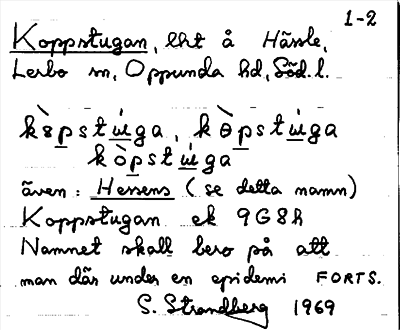 1-2
Koppstugan, lht å Hässle,
Lerbo sn, Oppunda hd, Söd. l.
kòpstúga
även: Hessens (se detta namn)
Koppstugan ek 9G8h
Namnet skall bero på att
man där under en epidemi FORTS.
S. Strandberg 1969